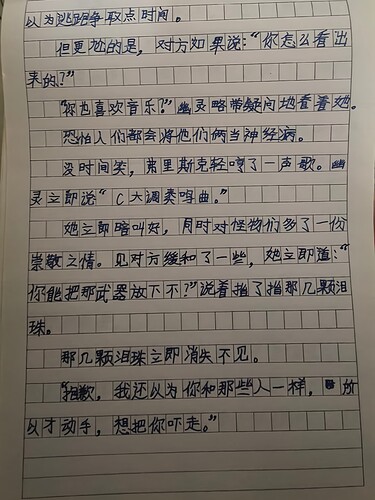 以为逃跑争取点时间。
但更尬的是，对方如果说：“你怎么看出
来的？”
“你也喜欢音乐？”幽灵略带疑问地看着她。
恐怕人们都会将他们俩当神经病。
没时间笑，弗里斯克轻哼了一声歌。幽
灵立即说“C大调奏鸣曲。”
她立即暗叫好，同时对怪物们多了一份
崇敬之情。见对方缓和了一些，她立即道：“
你能把那武器放下不？”说着指了指那几颗泪
珠。
那几颗泪珠立即消失不见。
“抱歉，我还以为你和那些人一样，所
以才动手，想把你吓走。”